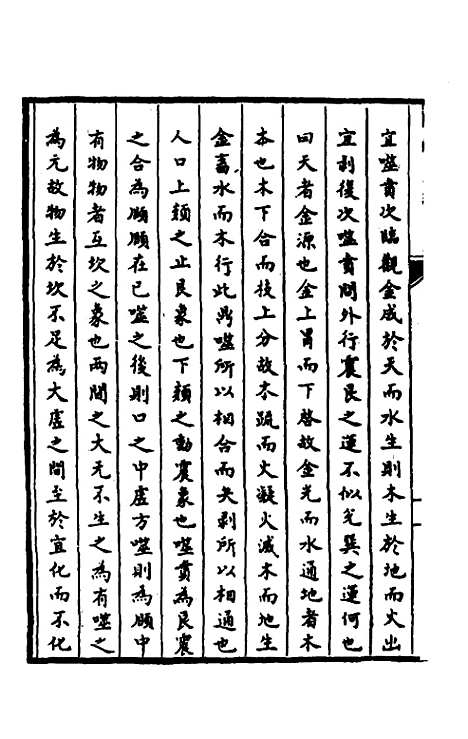 宜噬賁次臨觀金成於天而水生則木生於地而火出
宜剥復次噬賁間外行震艮之運不似兊巽之運何也
曰天者金源也金上冒而下啓故金光而水通地者木
本也木下合而後上分故木疏而火凝火滅木而地生
金畜水而木行此鼎噬所以相合而夬剥所以相通也
人口上頟之止艮象也下頦之動震象也噬賁為艮震
之合為頤頤在已噬之後則口之中虛方噬則為頤中
有物物者互坎之象也兩間之大无不生之為有噬之
為无故物生於坎不足為大虛之間至於宜化而不化